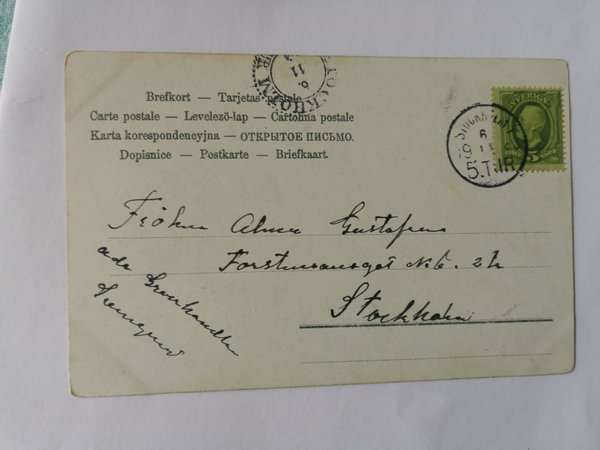 Brefkort — Tarjetas postale
Carte postale — Levelező-lap — Cartolina postale
Karta korespondencyjna — ОТКРЫТОЕ ПИСЬМО.
Dopisnice — Postkarte — Briefkaart.
STOCKHOLM
6
11
SVERIGE
5 ÖRE
STOCKHOLM
6
11
5.TUR
Fröken Alma Gustafsson
No. 2
Stockholm